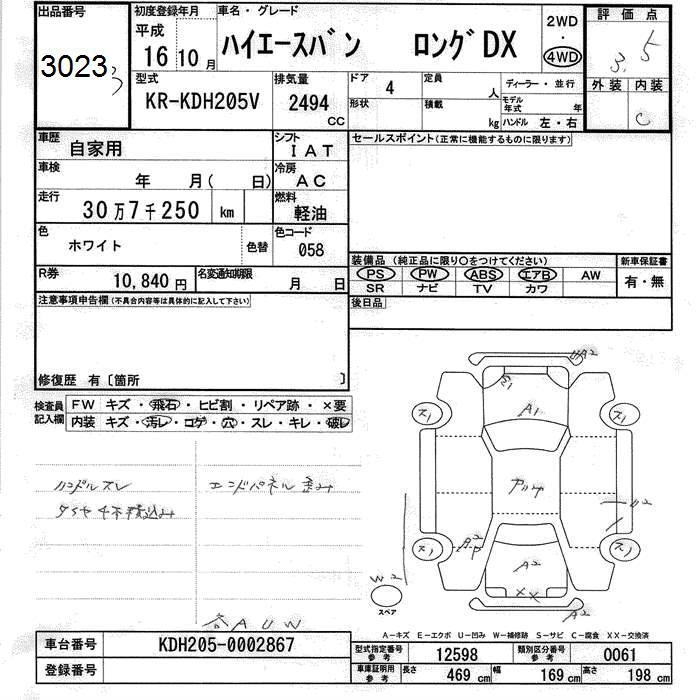 出品番号
3023
初度登録年月
平成
16年10月
車名・グレード
ハイエースバン ロングDX
2WD
・
4WD
評価点
3.5
外装 内装
C
型式
KR-KDH205V
排気量
2494
CC
ドア
4
形状
定員
人
積載
kg
ディーラー・並行
モデル年式 年
ハンドル 左・右
車歴
自家用
シフト
IAT
車検
年 月( 日)
冷房
AC
走行
30万7千250 km
燃料
軽油
色
ホワイト
色替
色コード
058
R券
10,840円
名変通知期限
月 日
セールスポイント(正常に機能するものに限ります)
装備品(純正品に限り○をつけてください)
新車保証書
PS PW ABS エアB AW
SR ナビ TV カワ
有・無
後日品
注意事項申告欄(不具合内容等は具体的に記入して下さい)
修復歴 有〔箇所 〕
検査員記入欄
FW キズ・飛石・ヒビ割・リペア跡・×要
内装 キズ・汚レ・コゲ・穴・スレ・キレ・破レ
ハンドルスレ
タイヤ4本積込み
エンドパネル歪み
各AUW
A2
E1
A1
ス1
ス1
U2
ス1
ス1
A2
XX
A2
W2
スペア
A-キズ E-エクボ U-凹み W-補修跡 S-サビ C-腐食 XX-交換済
車台番号
KDH205-0002867
登録番号
型式指定番号
参考
12598
類別区分番号
参考
0061
車庫証明用
参考
長さ 469 cm 幅 169 cm 高さ 198 cm